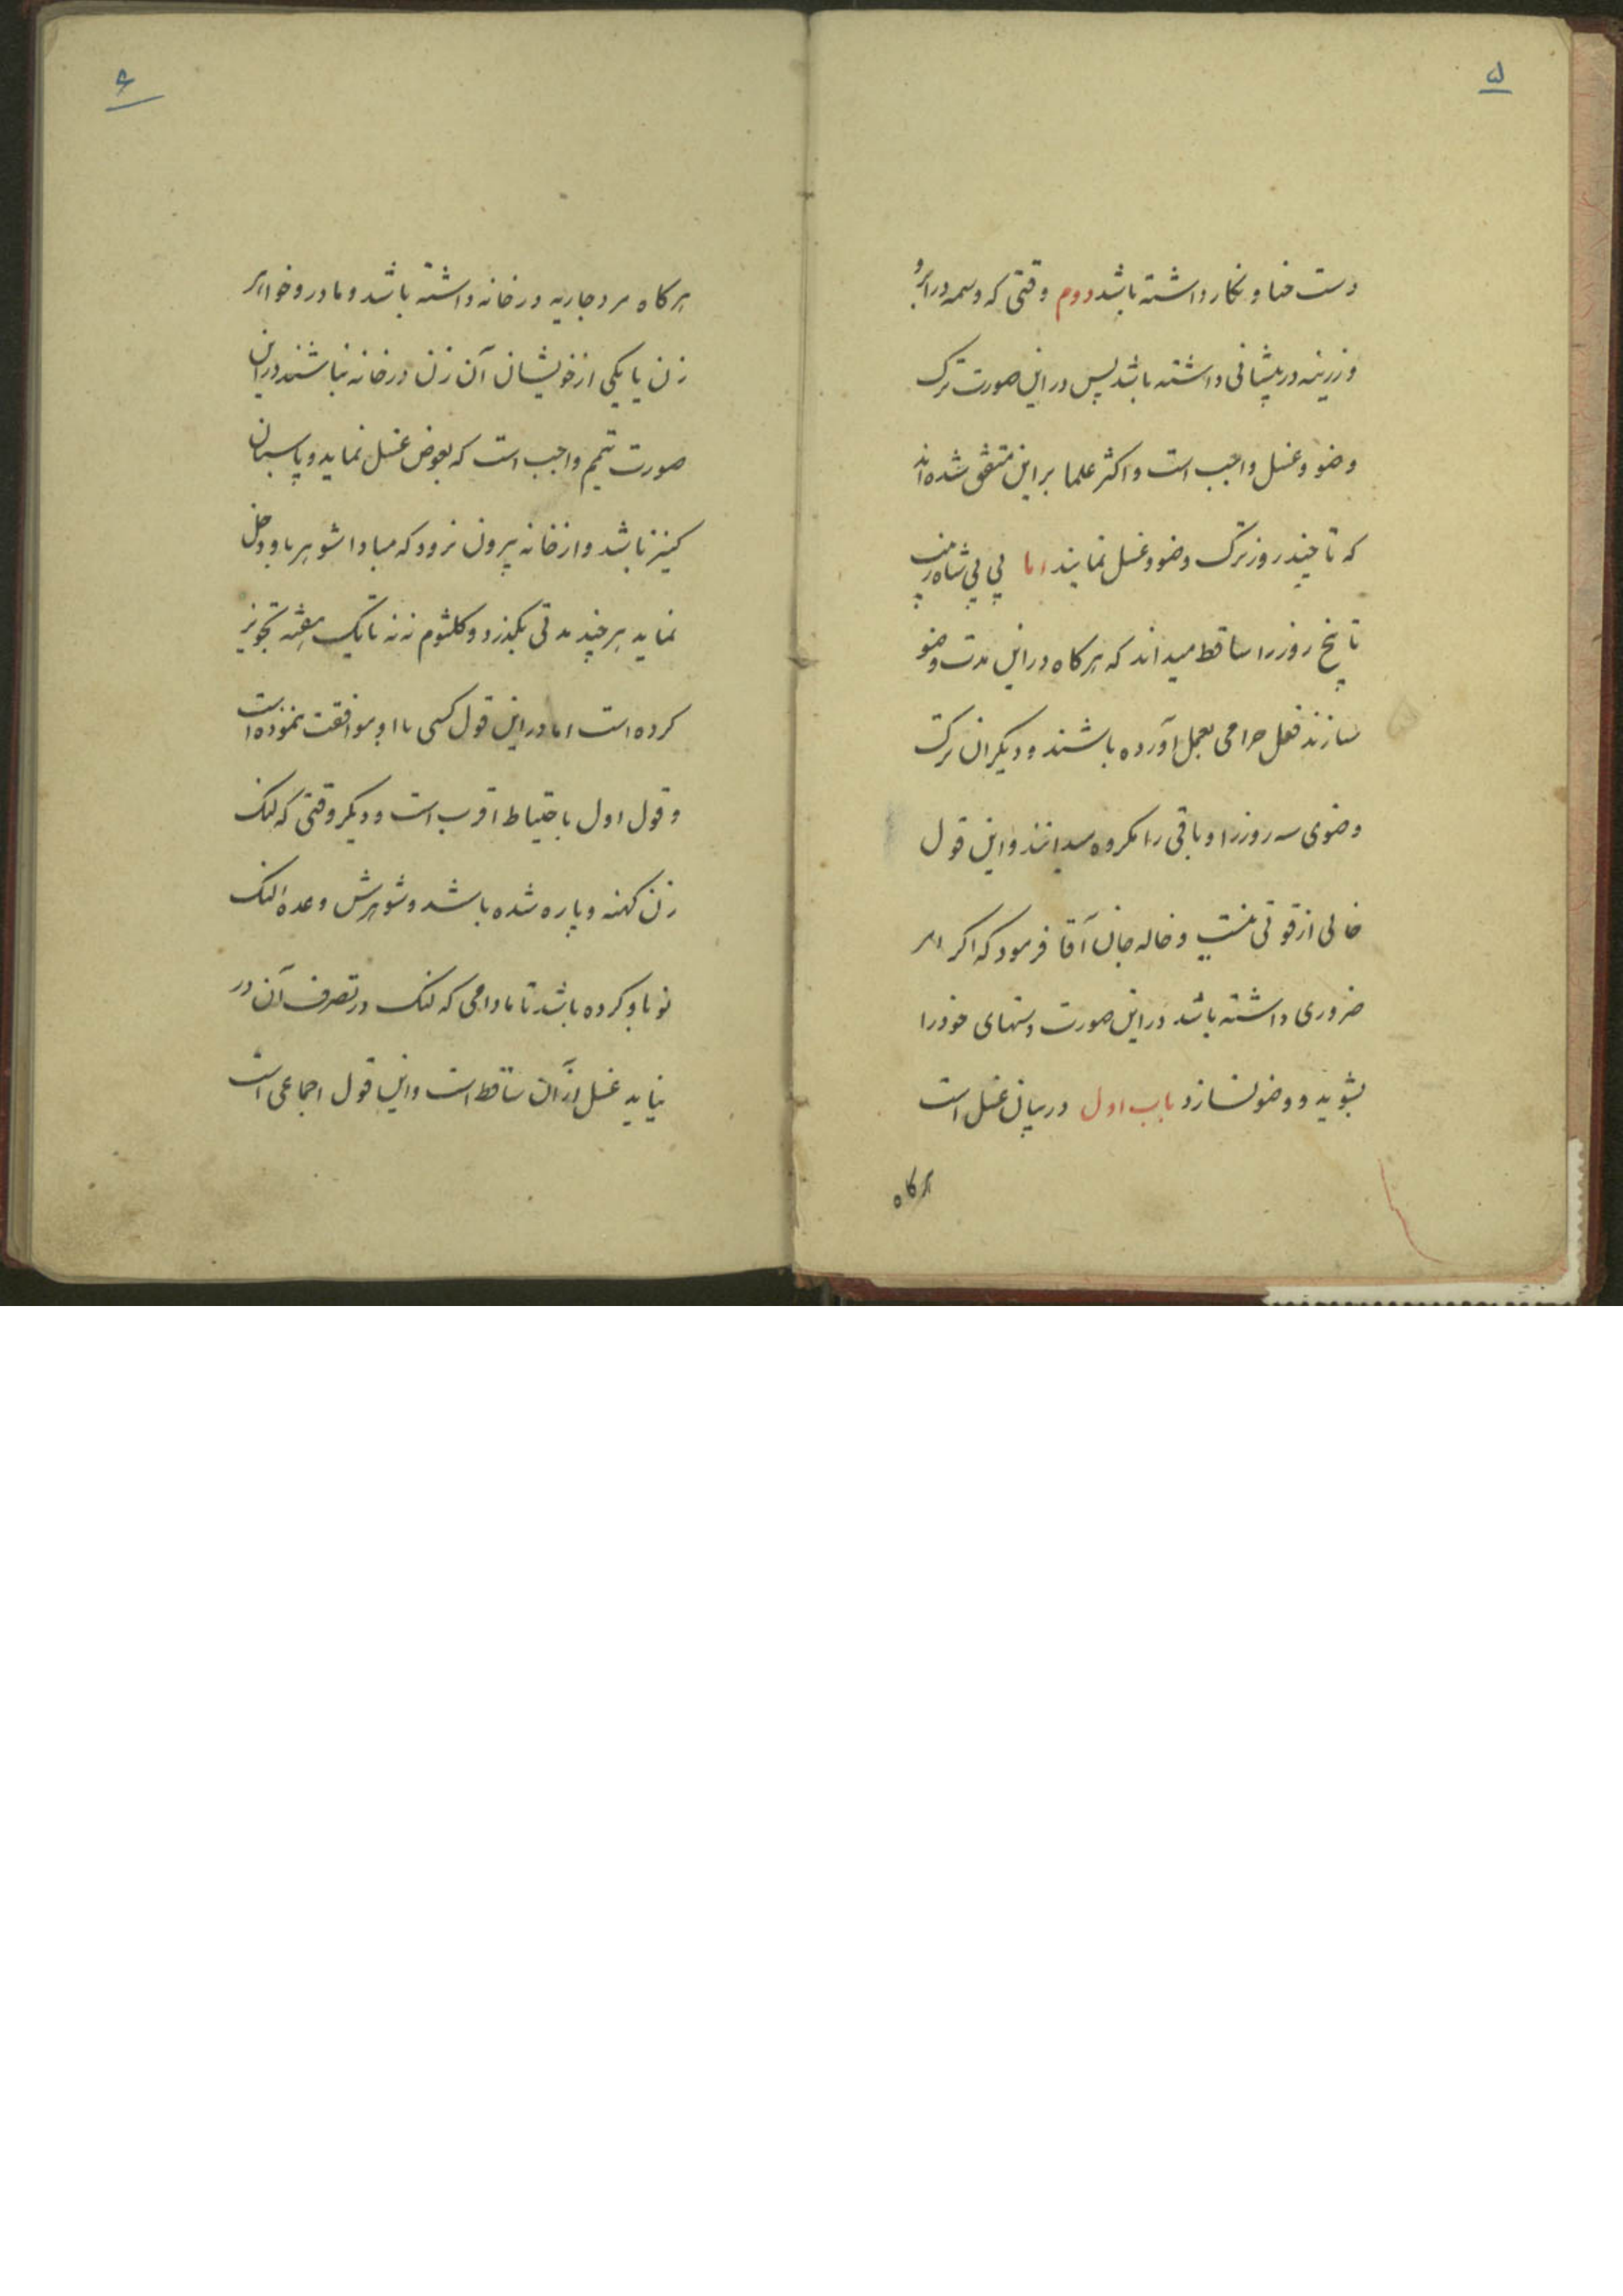 ۵
دست حنا و نکار داشته باشد دوم وقتی که وسمه در ابرو
و زرینه در پیشانی داشته باشد پس در این صورت ترک
وضو و غسل واجب است و اکثر علما بر این متفق شده‌اند
که تا چند روز ترک وضو و غسل نمایند اما بی بی شاه زینب
تا پنج روز را ساقط میداند که هرکاه در این مدت وضو
سازند فعل حرامی بعمل آورده باشند و دیکران ترک
وضوی سه روز را و باقی را مکروه میدانند و این قول
خالی از قوتی نیست و خاله جان آقا فرمود که اکر امر
ضروری داشته باشد در این صورت دستهای خود را
بشوید و وضو نسازد باب اول در بیان غسل است
هرکاه
۶
هرکاه مرد جاریه در خانه داشته باشد و مادر و خواهر
زن یا یکی از خویشان آن زن در خانه نباشند در این
صورت تیمم واجب است که بعوض غسل نماید و پاسبان
کنیز باشد و از خانه بیرون نرود که مبادا شوهر باو دخل
نماید هر چند مدتی بکذرد و کلثوم ننه تا یک هفته تجویز
کرده است اما در این قول کسی با او موافقت ننموده است
و قول اول باحتیاط اقرب است و دیکر وقتی که لنک
زن کهنه و پاره شده باشد و شوهرش وعده لنک
نو باو کرده باشد تا مادامی که لنک در تصرف آن در
نیاید غسل از آن ساقط است و این قول اجماعی است